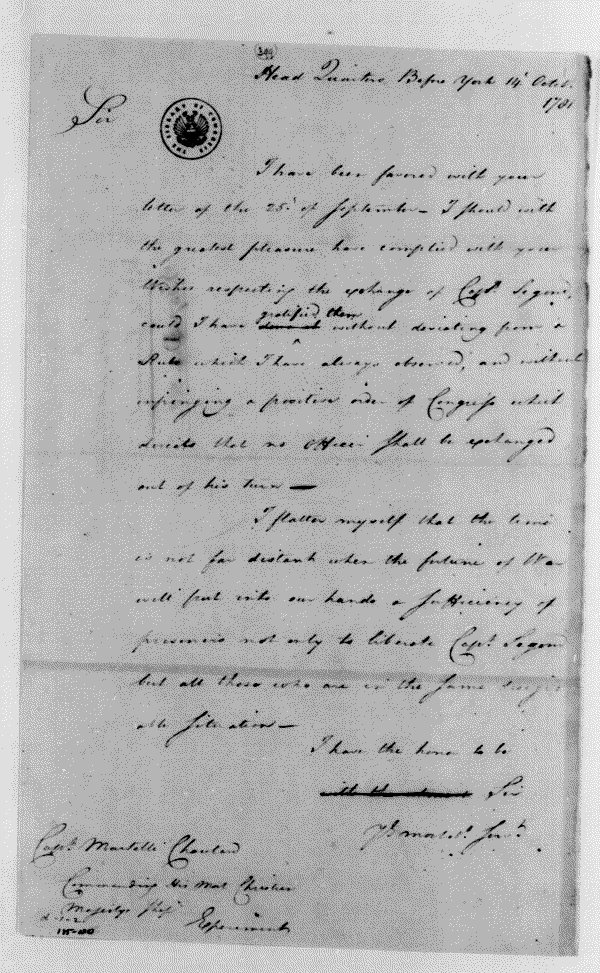 Head Quarters Before York 14 Octob.
1781
Sir
LIBRARY OF CONGRESS
I have been favored with your
letter of the 25 of September — I should with
the greatest pleasure have complied with your
Wishes respecting the exchange of Capt. Segond,
could I have gratified them without deviating from a
Rule which I have always observed, and without
infringing a positive order of Congress which
directs that no Officer shall be exchanged
out of his turn —
I flatter myself that the time
is not far distant when the fortune of War
will put into our hands a sufficiency of
prisoners not only to liberate Capt. Segond
but all those who are in the same
situation —
I have the honor to be
Sir
Yr. most obt. Servt.
Capt. Martelli Chautard
Commanding His Most Christian
Majestys Ship
Experiment